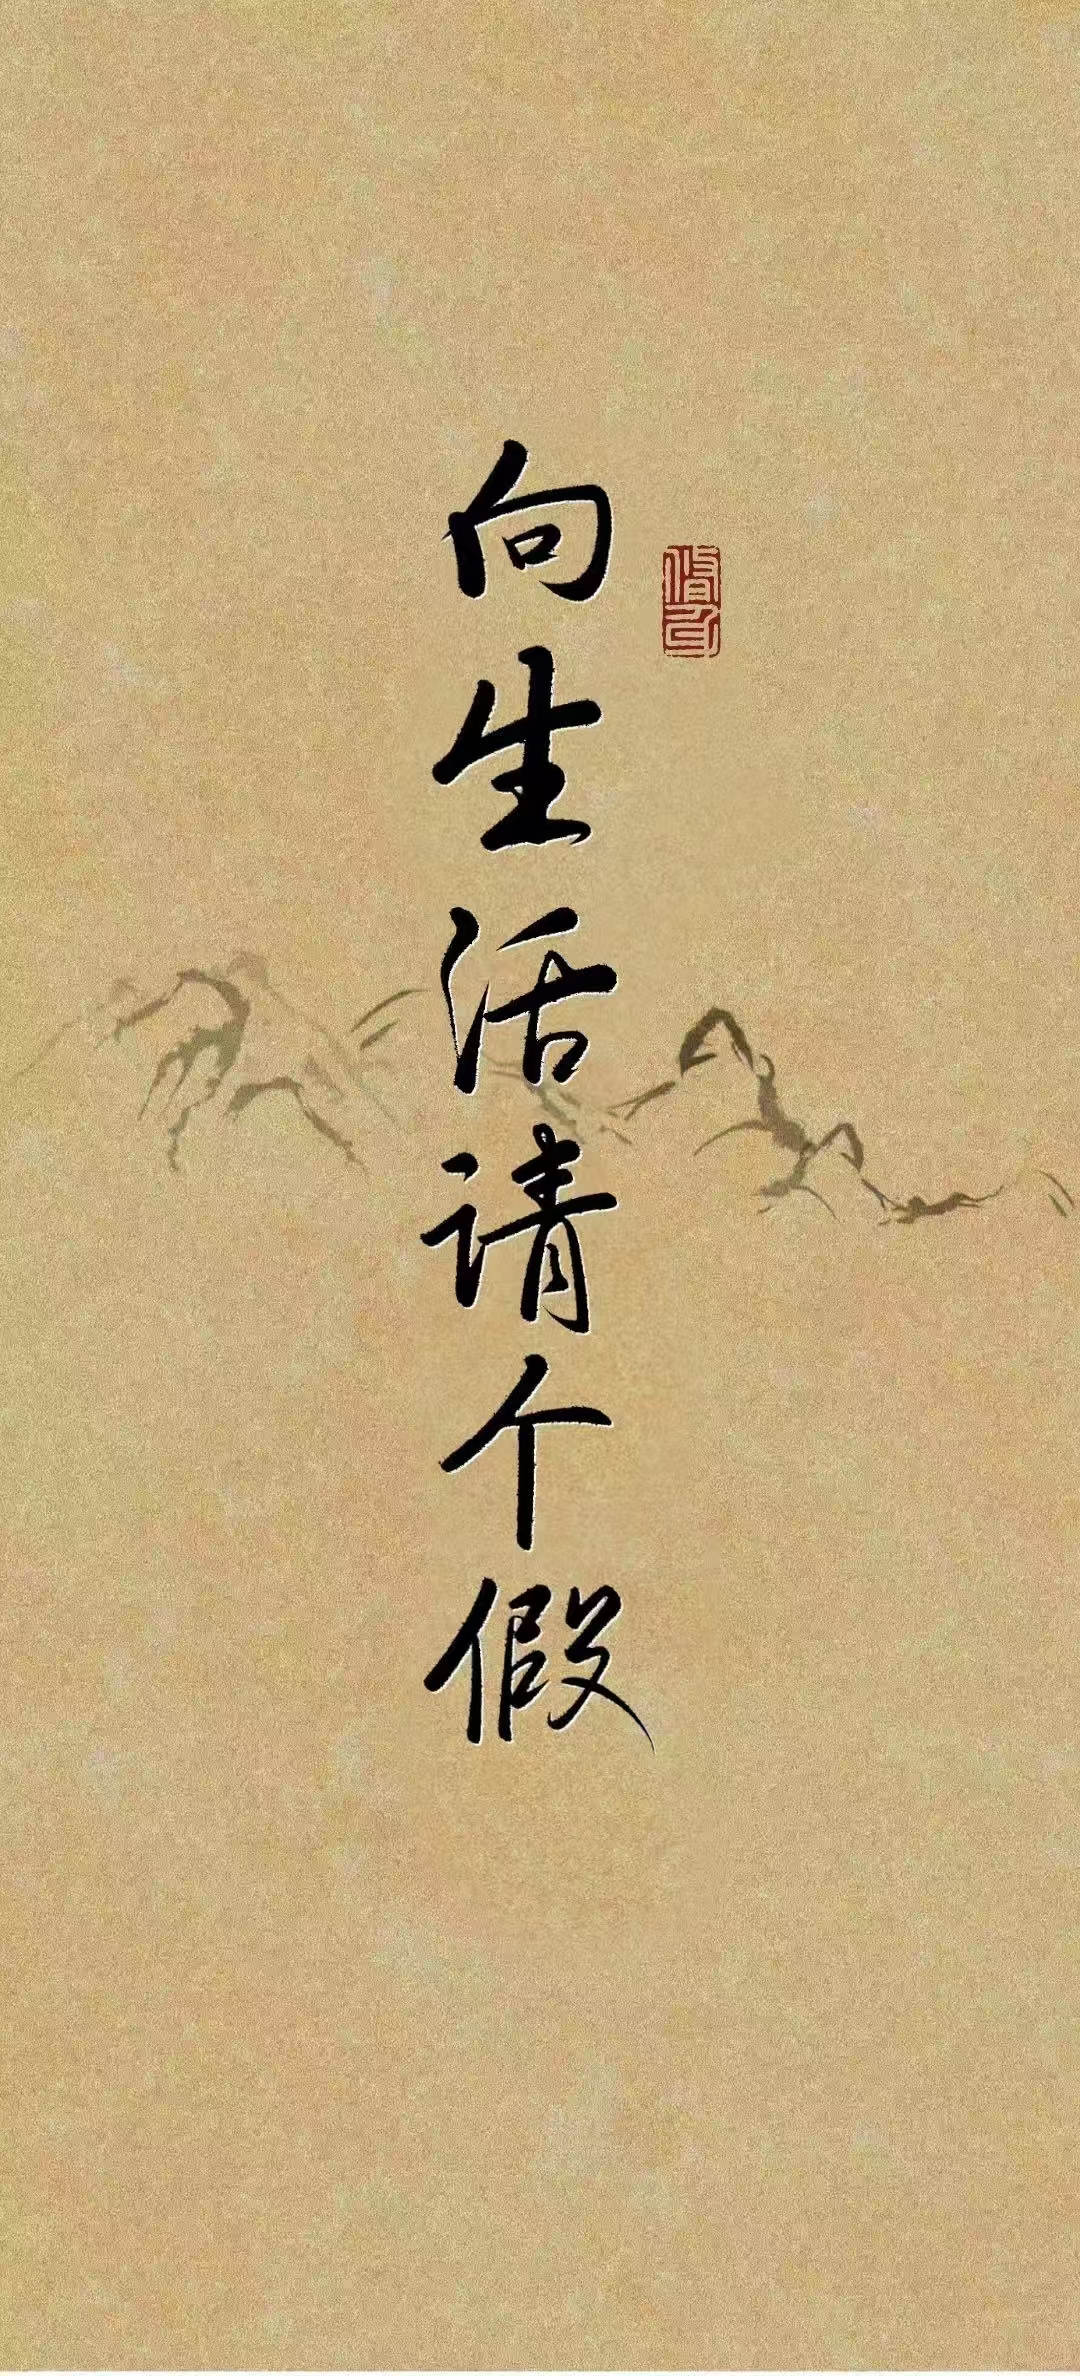 向生活请个假